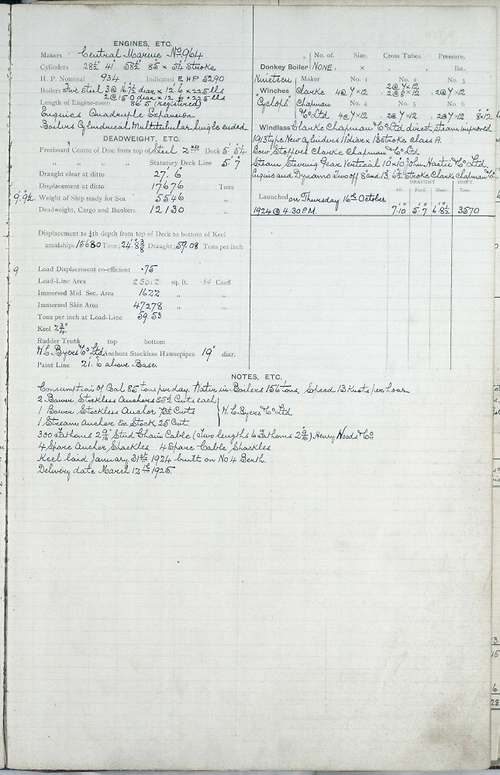 ENGINES, ETC.
Makers Central Marine No 964
Cylinders 28½" 41" 58½" 85" × 54" Stroke
H. P. Nominal 934 Indicated E.H.P 5290
Boilers Five Steel 3 @ 16'7½" diar × 12'.6" × 225 lbs
2 @ 15.0 diar × 12'.6" × 225 lbs
Length of Engine-room 86'5 (registered)
Engines Quadruple Expansion
Boilers Cylindrical, Multitubular, Single ended
DEADWEIGHT, ETC.
Freeboard Centre of Disc from top of Steel 2nd Deck
Statutory Deck Line 5' 7"
Draught clear at ditto 27'. 6"
Displacement at ditto 17676 Tons
9.9½ Weight of Ship ready for Sea 5546
Deadweight, Cargo and Bunkers 12130
Displacement to ⅘th depth from top of Deck to bottom of Keel
amidships 15680 Tons; Draught; 57.08 Tons per inch
9 Load Displacement co-efficient .75
Load-Line Area 25012 sq. ft. Coeff
Immersed Mid. Sec. Area 1622
Immersed Skin Area 47278
Tons per inch at Load-Line 59.55
Keel 2¾"
Rudder Trunk top bottom
W. L. Byers & Co Ltd Anchors Stockless Hawsepipes 19" diar.
Paint Line 21'. 6" above Base.
No. of. Size. Cross Tubes. Pressure.
Donkey Boiler NONE. × lbs.
Nineteen Maker No. 1 No. 2 No. 3
Winches Clarke 4 @ 7 × 12 2 @ 7 × 12
2 @ 8 × 12 2 @ 7 × 12
"Cyclops" Chapman No. 4 No. 5 No. 6
& Co Ltd 4 @ 7 × 12 2 @ 7 × 12 2 @ 7 × 12
Windlass Clarke Chapman & Co Ltd direct steam improved
1915 type New Cylinders 11" diar × 13" stroke Class A.
Bow Stopper Clarke Chapman & Co Ltd
Steam Steering Gear Vertical 10 × 10 John Hastie & Co Ltd
Engines and Dynamo Two off 8" and 13" 6½" Stroke Clarke Chapman & Co
DRAUGHT DISPT.
Aft. Ford. Mean. Tons.
Launched on Thursday 16th October
1924 @ 4.30 P.M. 7'.10" 5'.7" 6'.8½" 3570
NOTES, ETC.
Consumption of Coal 85 tons per day. Water in Boilers 156 tons. Speed 13 Knots per hour.
2 Bower Stockless Anchors Cwts each
1 Bower Stockless Anchor Cwts W. L. Byers & Co Ltd
1 Stream Anchor Ex Stock 25 Cwt
300 Fathoms Stud Chain Cable (Two lengths 4 Fathoms) Henry Wood & Co
4 Spare Anchor Shackles 4 Spare Cable Shackles
Keel laid January 31st 1924 built on No 4 Berth
Delivery date March 12th 1925.